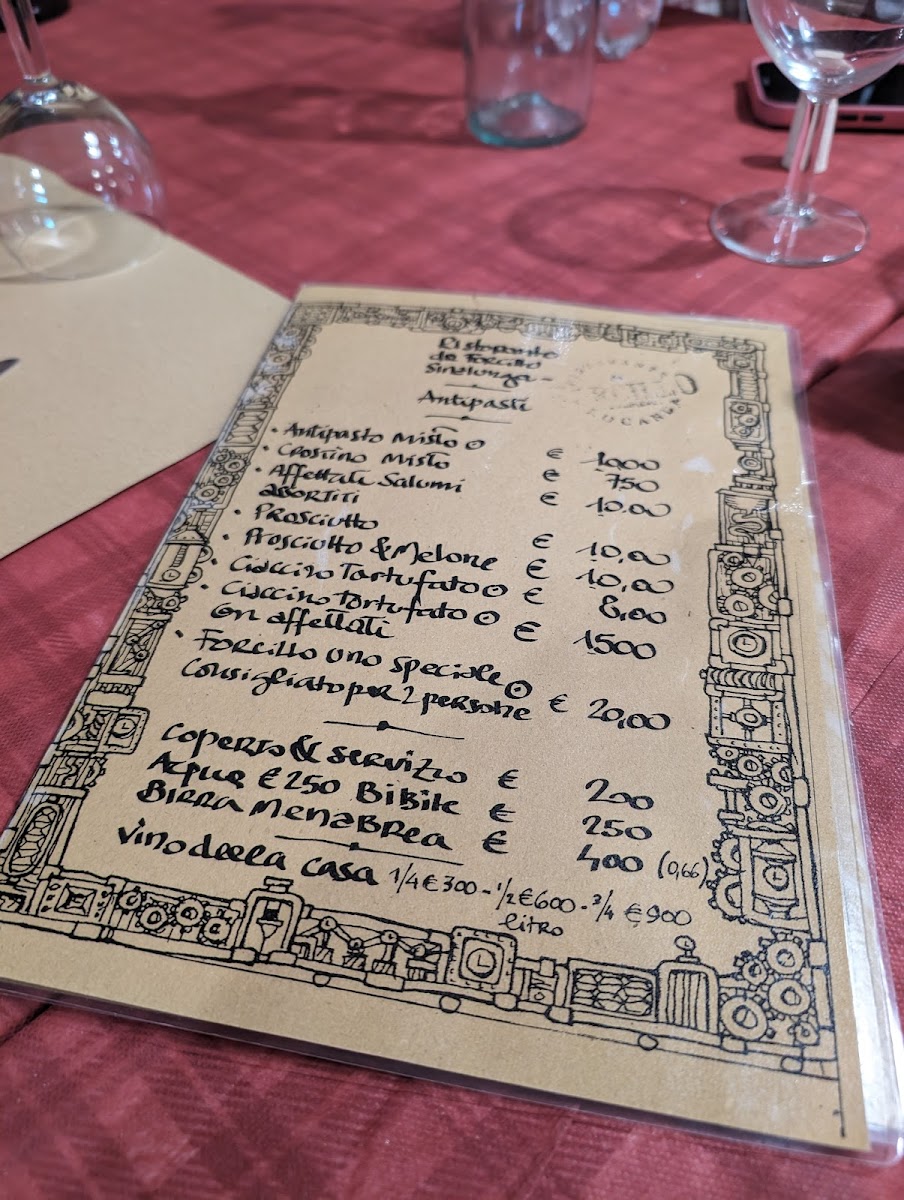 Ristorante
da Forcillo
Sinalunga
Antipasti
• Antipasto Misto € 1000
• Crostino Misto € 750
• Affettati Salumi € 10.00
assortiti
• Prosciutto € 10,00
• Prosciutto & Melone € 10,00
• Ciaccino Tartufato € 8,00
• Ciaccino Tartufato € 1500
con affettati
• Forcillo uno speciale
consigliato per 2 persone € 20,00
Coperto & servizio € 200
Acqua € 250 Bibite € 250
Birra Menabrea € 400 (0,66)
Vino della casa 1/4 € 300 - 1/2 € 600 - 3/4 € 900
litro
LOCANDA